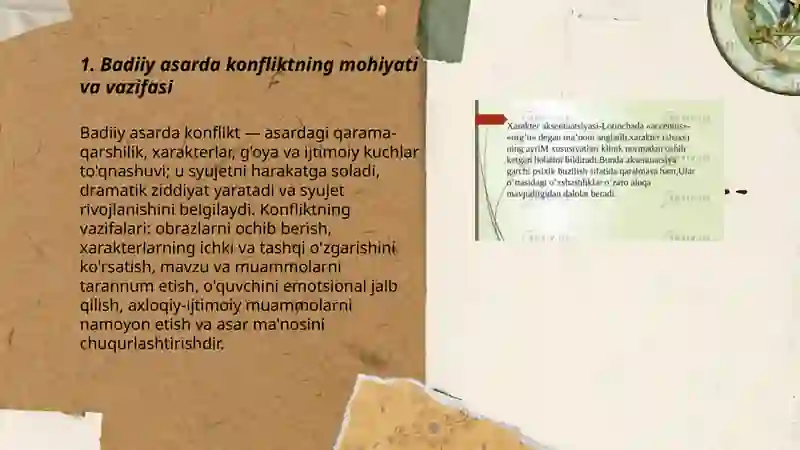 1. Badiiy asarda konfliktning mohiyati
va vazifasi
Badiiy asarda konflikt — asardagi qarama-
qarshilik, xarakterlar, g'oya va ijtimoiy kuchlar
to'qnashuvi; u syujetni harakatga soladi,
dramatik ziddiyat yaratadi va syujet
rivojlanishini belgilaydi. Konfliktning
vazifalari: obrazlarni ochib berish,
xarakterlarning ichki va tashqi o'zgarishini
ko'rsatish, mavzu va muammolarni
tarannum etish, o'quvchini emotsional jalb
qilish, axloqiy-ijtimoiy muammolarni
namoyon etish va asar ma'nosini
chuqurlashtirishdir.
Xarakter aksentuatsiyasi-Lotinchada «accentus»-
«urg'u» degan ma'noni anglatib,xarakter
ning ayriM xususiyatlari klinik normadan oshib
ketgan holatini bildiradi.Bunda aksentuatsiya
garchi psixik buzilish sifatida qaralmasa ham,Ular
o'rtasidagi o'xshashliklar o'zaro aloqa
mavjudligidan dalolat beradi.